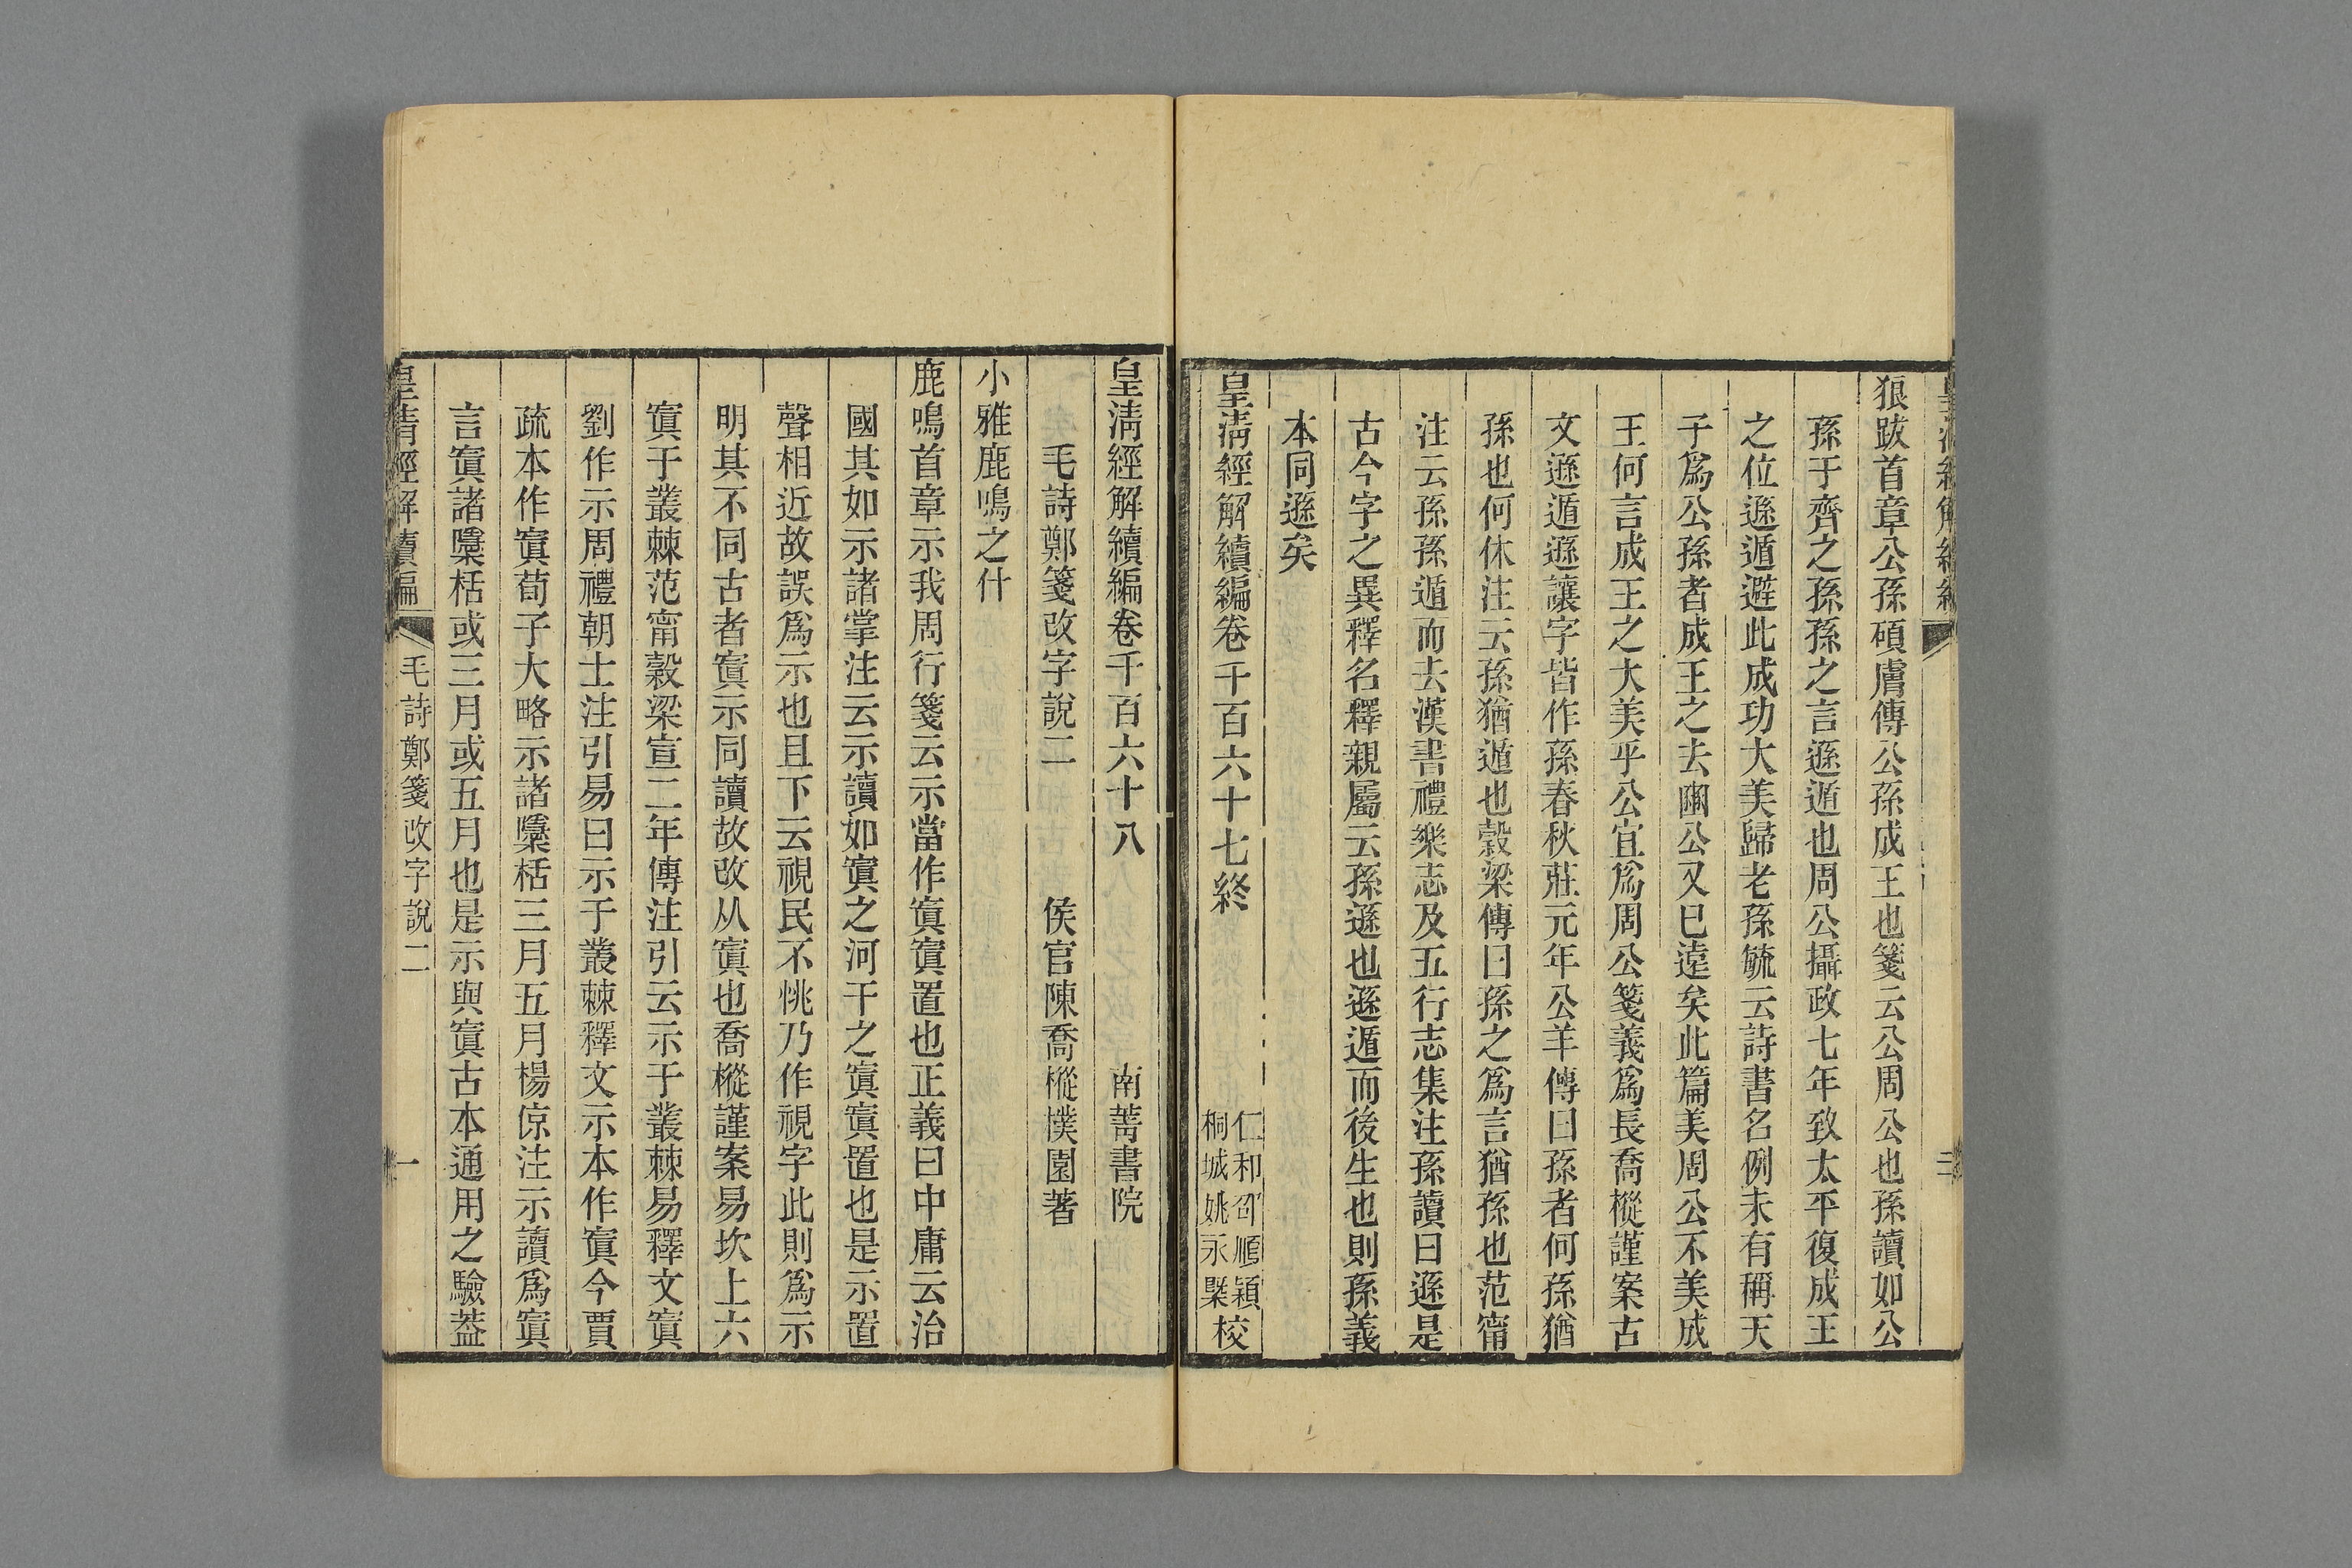 狼跋首章公孫碩膚傳公孫成王也箋云公周公也孫讀如公
孫于齊之孫孫之言遜遁也周公攝政七年致太平復成王
之位遜遁避此成功大美歸老孫毓云詩書名例未有稱天
子爲公孫者成王之去豳公又已遠矣此篇美周公不美成
王何言成王之大美乎公宜爲周公箋義爲長喬樅謹案古
文遜遁遜讓字皆作孫春秋莊元年公羊傳曰孫者何孫猶
孫也何休注云孫猶遁也穀梁傳曰孫之爲言猶孫也范甯
注云孫孫遁而去漢書禮樂志及五行志集注孫讀曰遜是
古今字之異釋名釋親屬云孫遜也遜遁而後生也則孫義
本同遜矣
皇淸經解續編卷千百六十七終
仁和邵順穎
桐城姚永㮣校
皇淸經解續編卷千百六十八 南菁書院
毛詩鄭箋改字說二 侯官陳喬樅樸園著
小雅鹿鳴之什
鹿鳴首章示我周行箋云示當作寘寘置也正義曰中庸云治
國其如示諸掌注云示讀如寘之河干之寘寘置也是示置
聲相近故誤爲示也且下云視民不恌乃作視字此則爲示
明其不同古者寘示同讀故改从寘也喬樅謹案易坎上六
寘于叢棘范甯穀梁宣二年傳注引云示于叢棘易釋文寘
劉作示周禮朝士注引易曰示于叢棘釋文示本作寘今賈
疏本作寘荀子大略示諸檃栝三月五月楊倞注示讀爲寘
言寘諸檃栝或三月或五月也是示與寘古本通用之驗葢
皇淸經解續編 毛詩鄭箋改字說二 一